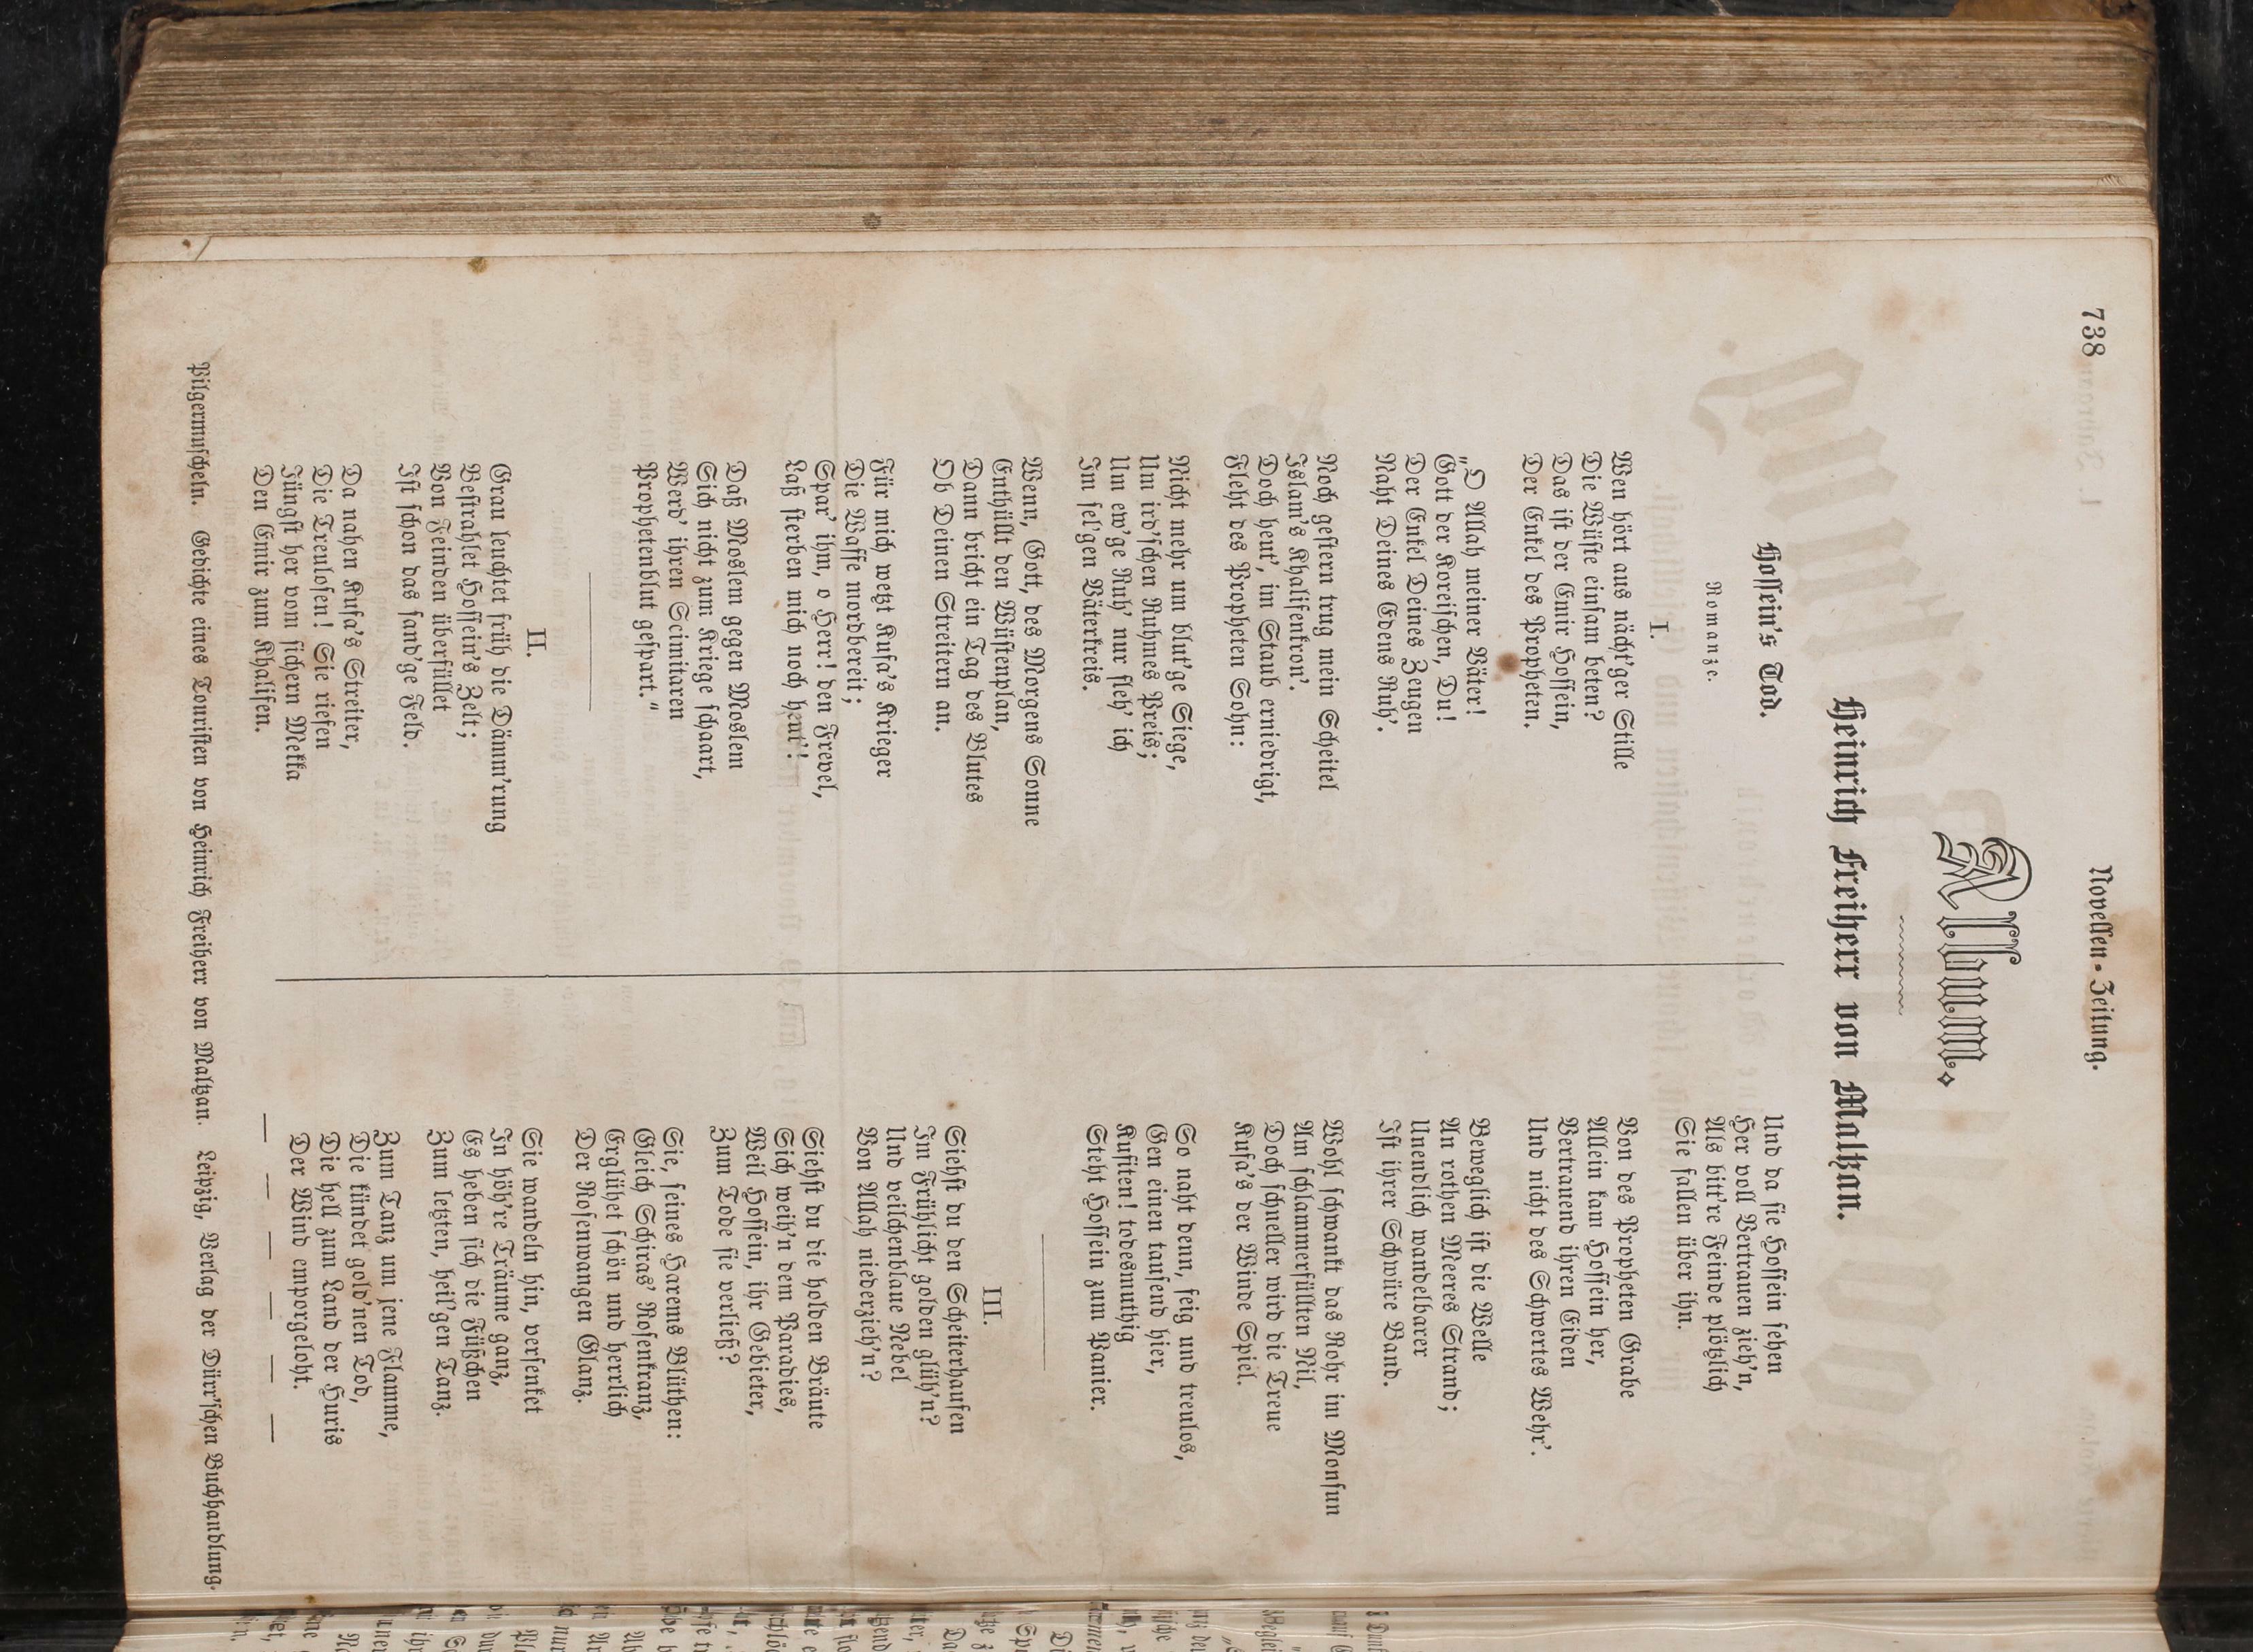 738
Novellen-Zeitung.
Album.
Heinrich Freiherr von Maltzan.
Hossein's Tod.
Romanze.
I.
Wen hört aus nächt'ger Stille
Die Wüste einsam beten?
Das ist der Emir Hossein,
Der Enkel des Propheten.
„O Allah meiner Väter!
Gott der Koreischen, Du!
Der Enkel Deines Zeugen
Naht Deines Edens Ruh'.
Noch gestern trug mein Scheitel
Islam's Chalifenkron'.
Doch heut', im Staub erniedrigt,
Fleht des Propheten Sohn:
Nicht mehr um blut'ge Siege,
Um ird'schen Ruhmes Preis;
Um ew'ge Ruh' nur fleh' ich
Im sel'gen Väterkreis.
Wenn, Gott, des Morgens Sonne
Enthüllt den Wüstenplan,
Dann bricht ein Tag des Blutes
Ob Deinen Streitern an.
Für mich wetzt Kufa's Krieger
Die Waffe mordbereit;
Spar' ihm, o Herr! den Frevel,
Laß sterben mich noch heut'!
Daß Moslem gegen Moslem
Sich nicht zum Kriege schaart,
Werd' ihren Scimitaren
Prophetenblut gespart."
II.
Grau leuchtet früh die Dämm'rung
Bestrahlet Hossein's Zelt;
Von Feinden überfüllet
Ist schon das sand'ge Feld.
Da nahen Kufa's Streiter,
Die Treulosen! Sie riefen
Jüngst her vom sichern Mekka
Den Emir zum Khalifen.
Und da sie Hossein sehen
Her voll Vertrauen zieh'n,
Als bitt're Feinde plötzlich
Sie fallen über ihn.
Von des Propheten Grabe
Allein kam Hossein her,
Vertrauend ihren Eiden
Und nicht des Schwertes Wehr'.
Beweglich ist die Welle
An rothen Meeres Strand;
Unendlich wandelbarer
Ist ihrer Schwüre Band.
Wohl schwankt das Rohr im Monsun
Am schlammerfüllten Nil,
Doch schneller wird die Treue
Kufa's der Winde Spiel.
So naht denn, feig und treulos,
Gen einen tausend hier,
Kufiten! todesmuthig
Steht Hossein zum Panier.
III.
Siehst du den Scheiterhaufen
Im Frühlicht golden glüh'n?
Und veilchenblaue Nebel
Von Allah niederzieh'n?
Siehst du die holden Bräute
Sich weih'n dem Paradies,
Weil Hossein, ihr Gebieter,
Zum Tode sie verließ?
Sie, seines Harems Blüthen:
Gleich Schiras' Rosenkranz,
Erglühet schön und herrlich
Der Rosenwangen Glanz.
Sie wandeln hin, versenket
In höh're Träume ganz,
Es heben sich die Füßchen
Zum letzten, heil'gen Tanz.
Zum Tanz um jene Flamme,
Die kündet gold'nen Tod,
Die hell zum Land der Huris
Der Wind emporgeloht.
— — — — — —
Pilgermuscheln. Gedichte eines Touristen von Heinrich Freiherr von Maltzan. Leipzig, Verlag der Dürr'schen Buchhandlung.